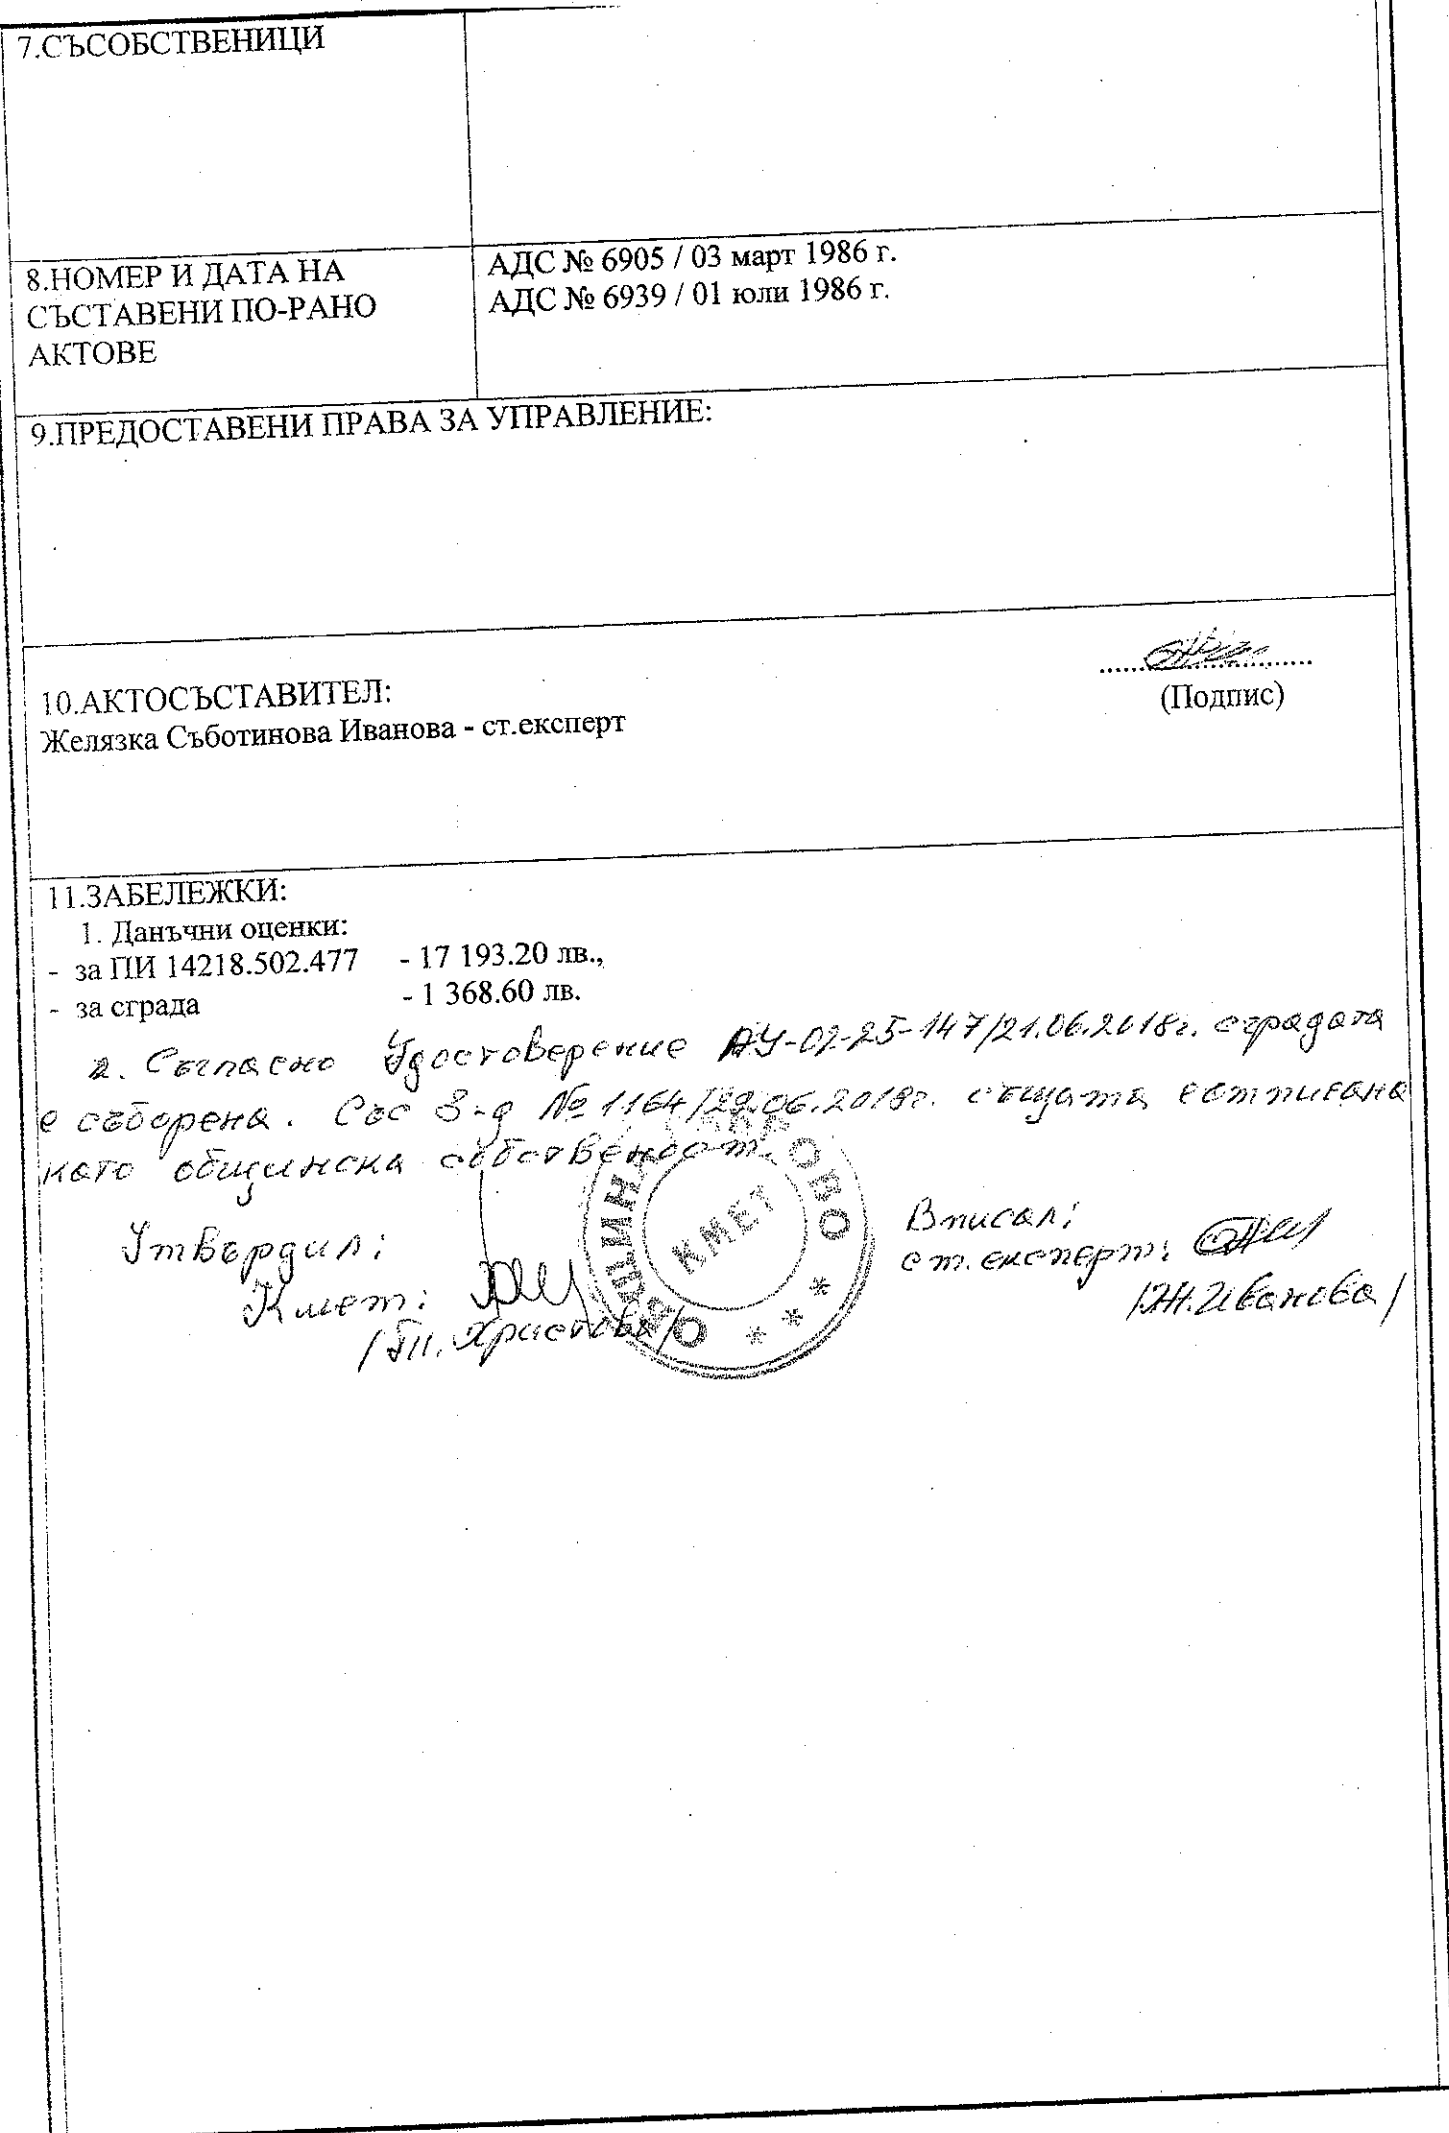 7.СЪСОБСТВЕНИЦИ
8.НОМЕР И ДАТА НА
СЪСТАВЕНИ ПО-РАНО
АКТОВЕ
АДС № 6905 / 03 март 1986 г.
АДС № 6939 / 01 юли 1986 г.
9.ПРЕДОСТАВЕНИ ПРАВА ЗА УПРАВЛЕНИЕ:
10.АКТОСЪСТАВИТЕЛ:
Желязка Съботинова Иванова - ст.експерт
(Подпис)
11.ЗАБЕЛЕЖКИ:
1. Данъчни оценки:
- за ПИ 14218.502.477 - 17 193.20 лв.,
- за сграда - 1 368.60 лв.
2. Съгласно Удостоверение АУ-02-25-147/21.06.2018г. сградата
е съборена. Със З-д № 1164/29.06.2018г. същата е отписана
като общинска собственост.
Утвърдил:
Кмет:
Христова/
Вписал:
ст. експерт:
/Ж. Иванова/
ОБЩИНА
КМЕТ